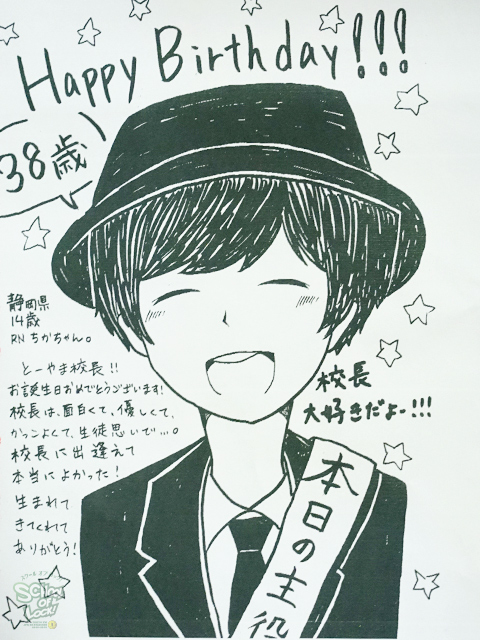 Happy Birthday!!!
38歳
静岡県
14歳
RN ちかちゃん。
とーやま校長!!
お誕生日おめでとうございます!
校長は、面白くて、優しくて、
かっこよくて、生徒思いで…。
校長に出逢えて
本当によかった!
生まれて
きてくれて
ありがとう!
校長
大好きだよー!!!
本日の主役
SCHOOL OF LOCK!